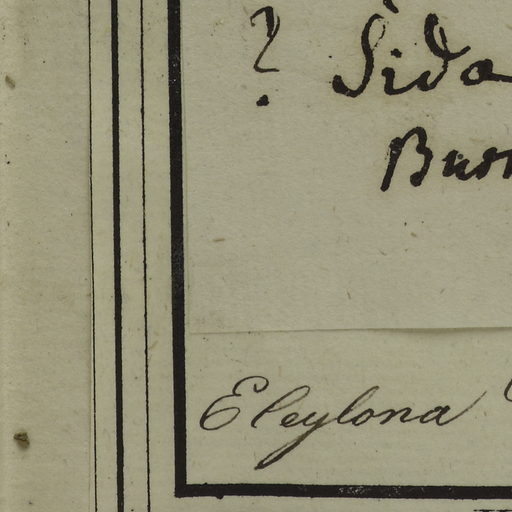 ? Sida
Bur
E Ceylona